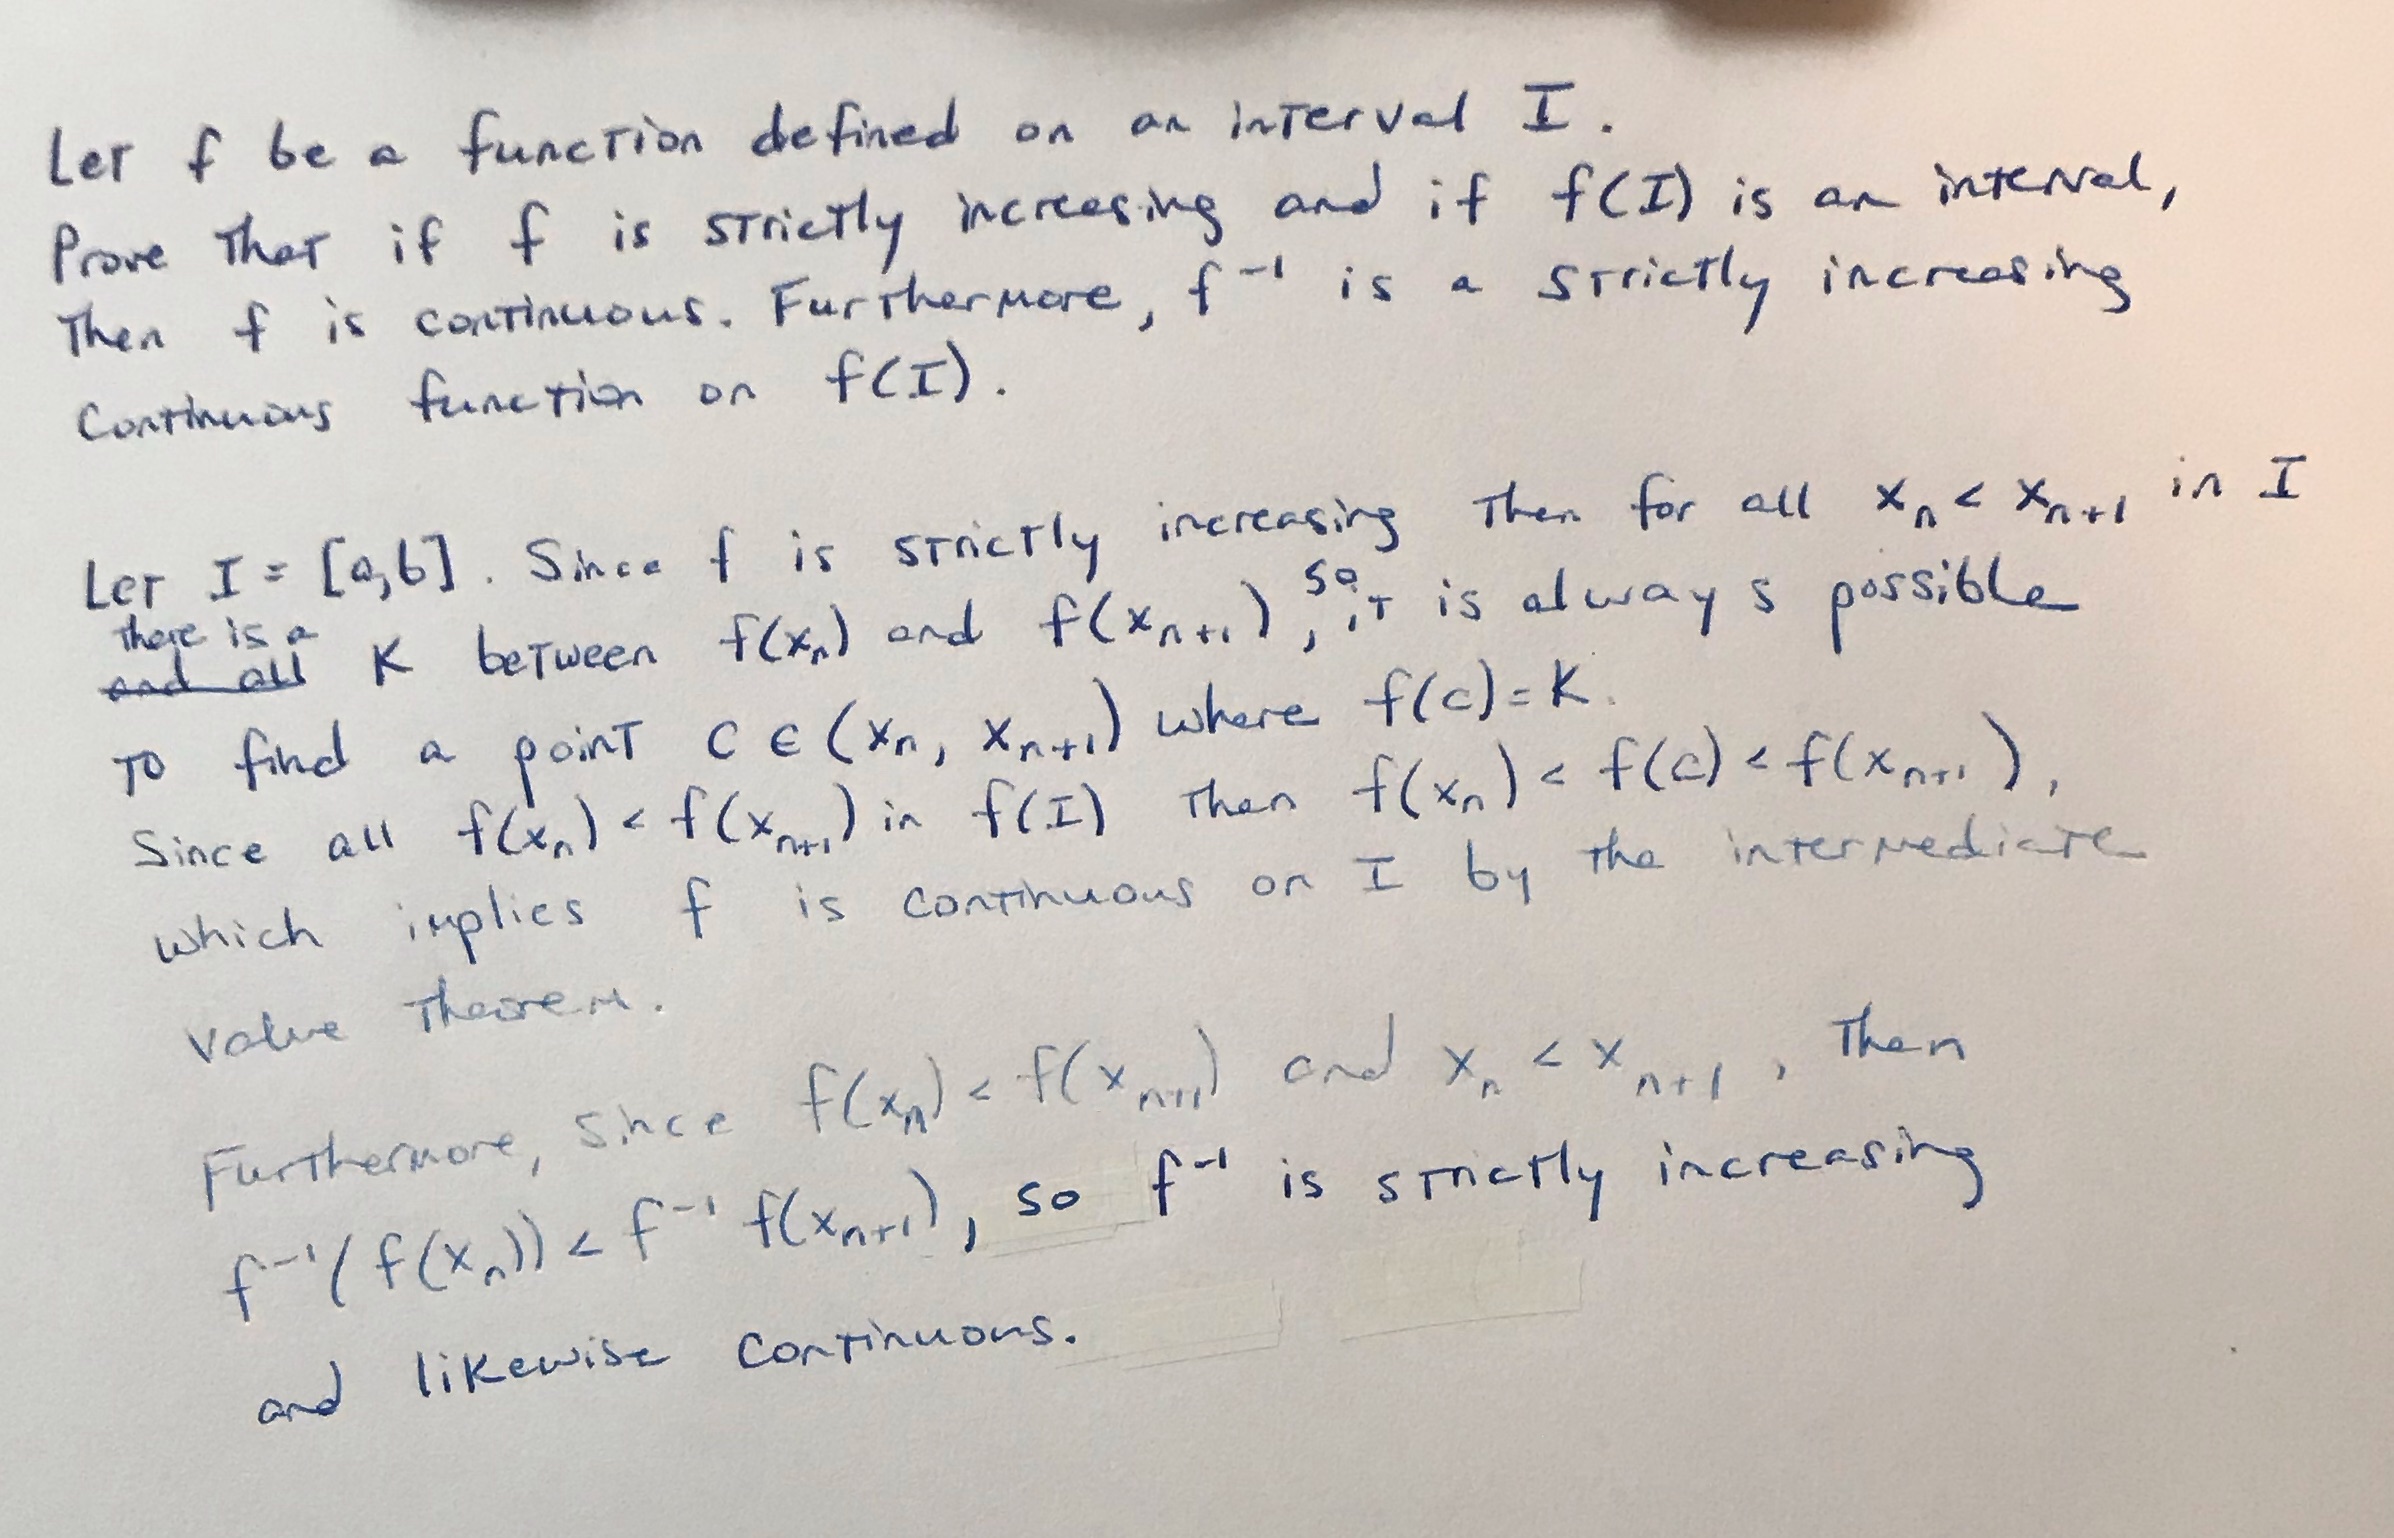 Let f be a function defined on an interval I.
Prove that if f is strictly increasing and if f(I) is an interval,
Then f is continuous. Furthermore, f⁻¹ is a strictly increasing
continuous function on f(I).
Let I = [a,b]. Since f is strictly increasing then for all xₙ < xₙ₊₁ in I
there is a
and all K between f(xₙ) and f(xₙ₊₁), so it is always possible
to find a point c ∈ (xₙ, xₙ₊₁) where f(c) = K.
Since all f(xₙ) < f(xₙ₊₁) in f(I) then f(xₙ) < f(c) < f(xₙ₊₁),
which implies f is continuous on I by the intermediate
value theorem.
Furthermore, since f(xₙ) < f(xₙ₊₁) and xₙ < xₙ₊₁, then
f⁻¹(f(xₙ)) < f⁻¹ f(xₙ₊₁), so f⁻¹ is strictly increasing
and likewise continuous.